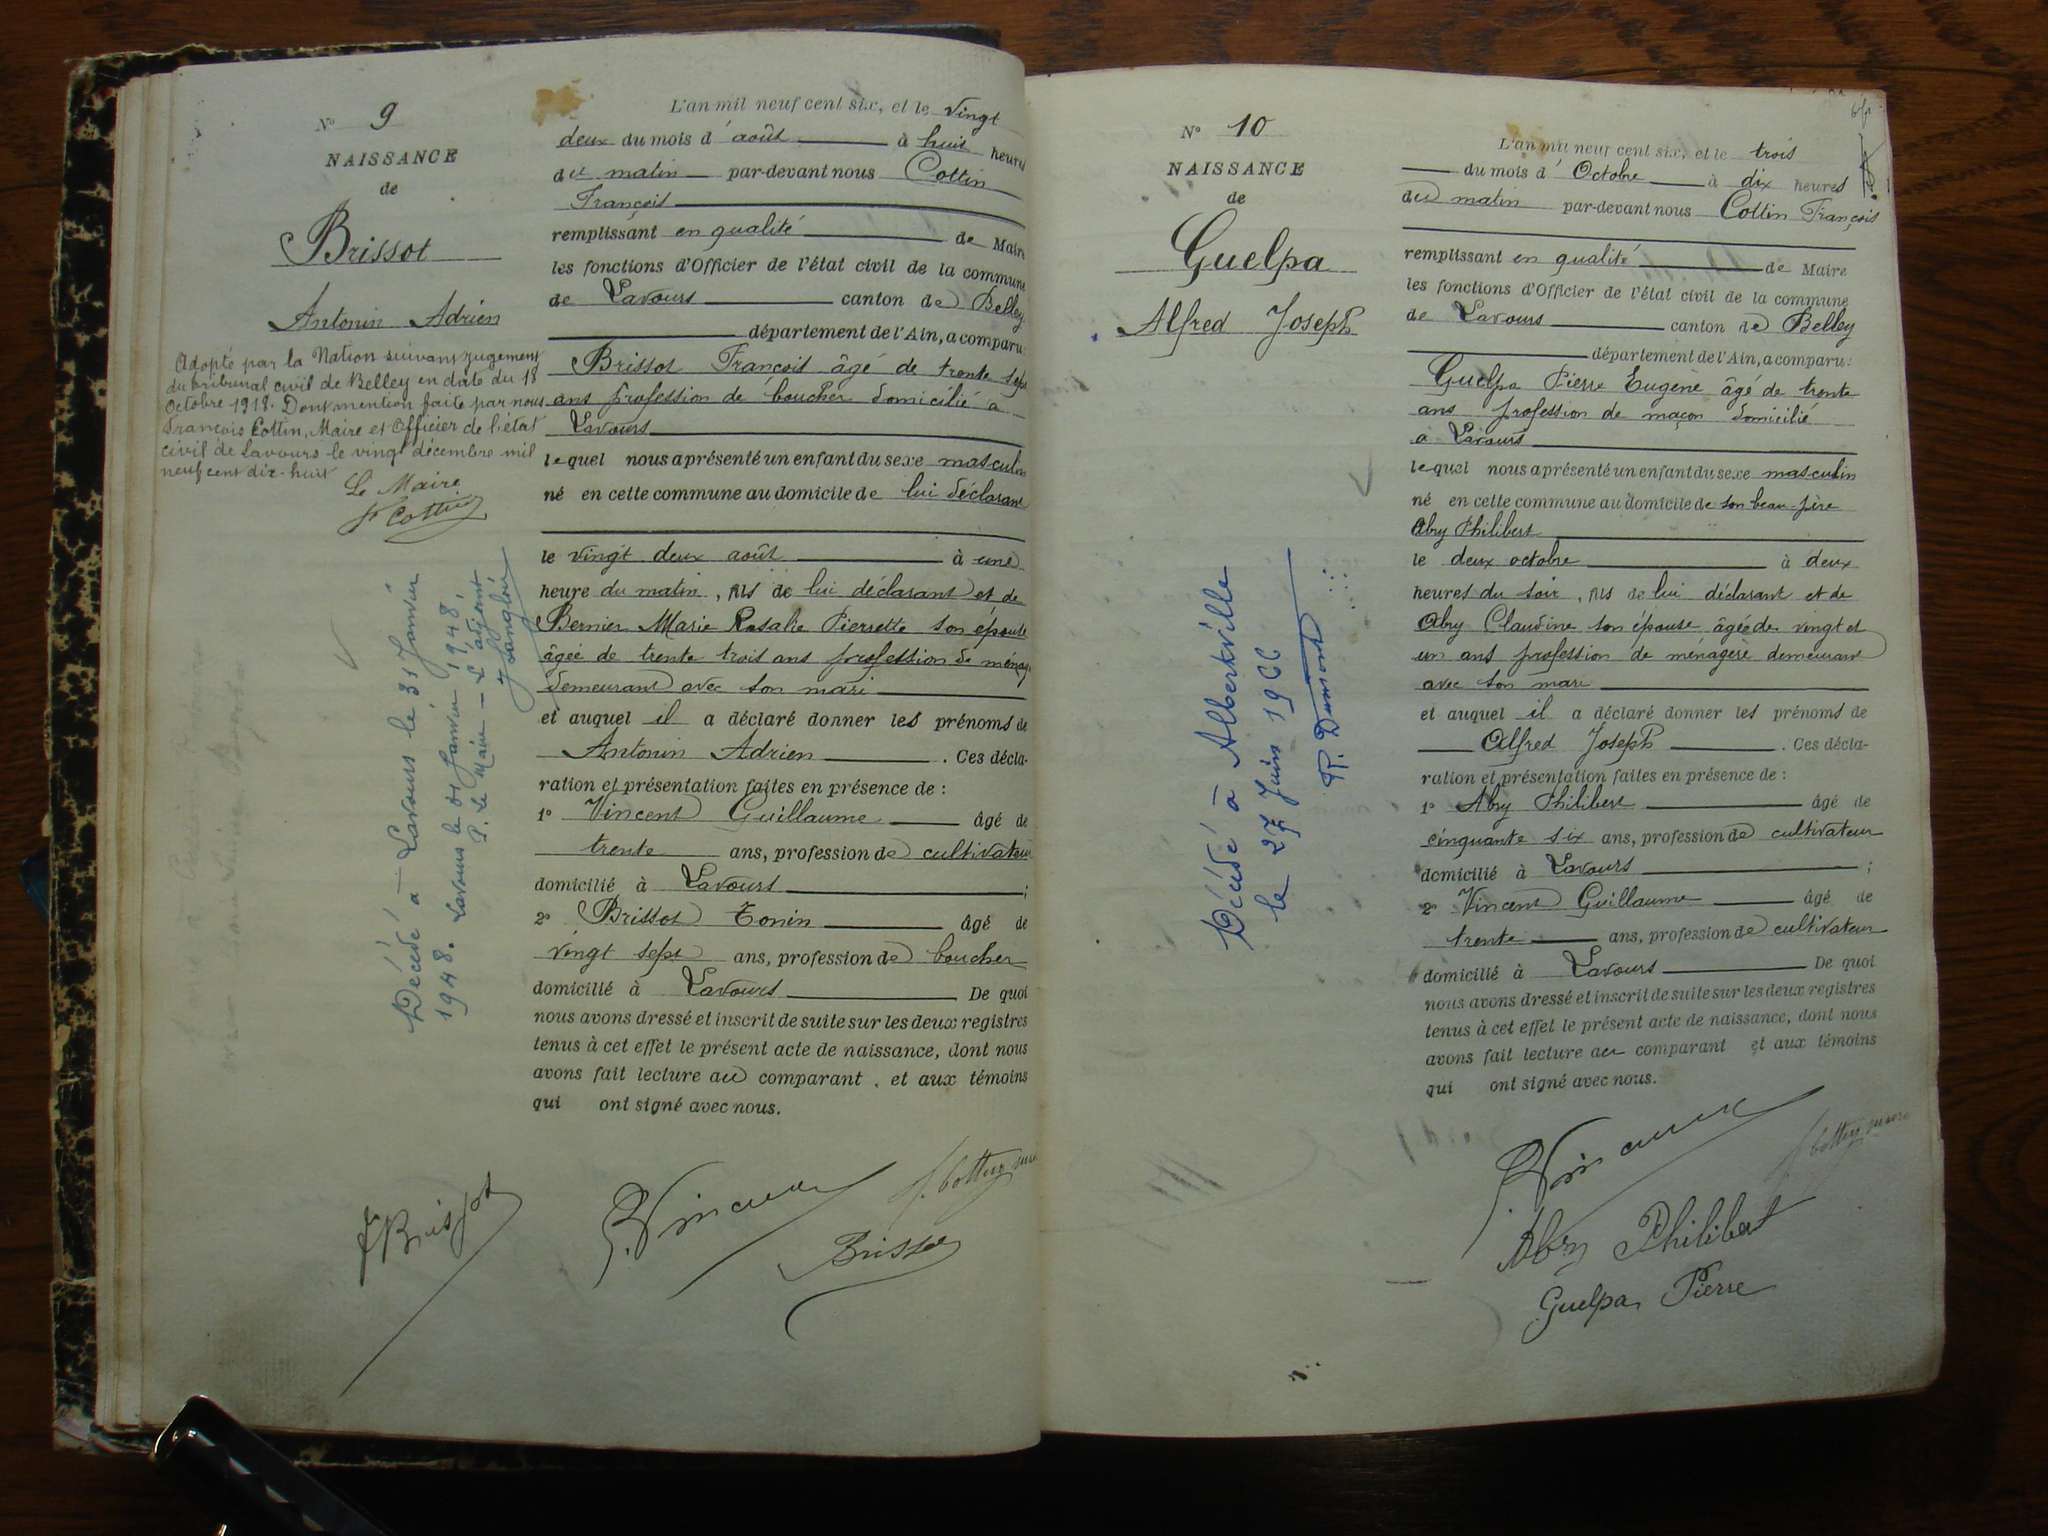 N° 9
NAISSANCE
de
Brissot
Antonin Adrien
Adopté par la Nation suivant jugement
du tribunal civil de Belley en date du 18
Octobre 1918. Dont mention faite par nous
François Cottin, Maire et Officier de l'état
civil de Lavours le vingt décembre mil
neuf cent dix-huit
Le Maire
F Cottin
Décédé à Lavours le 31 Janvier
1948. Lavours le 31 Janvier 1948,
P. Le Maire - L'adjoint
L'an mil neuf cent six, et le vingt
deux du mois d'août à huit heures
du matin par-devant nous Cottin
François
remplissant en qualité de Maire
les fonctions d'Officier de l'état civil de la commune
de Lavours canton de Belley
département de l'Ain, a comparu:
Brissot François âgé de trente sept
ans profession de boucher domicilié à
Lavours
lequel nous a présenté un enfant du sexe masculin
né en cette commune au domicile de lui déclarant
le vingt deux août à une
heure du matin, fils de lui déclarant et de
Bernier Marie Rosalie Pierrette son épouse
âgée de trente trois ans profession de ménagère
demeurant avec son mari
et auquel il a déclaré donner les prénoms de
Antonin Adrien. Ces décla-
ration et présentation faites en présence de :
1° Vincent Guillaume âgé de
trente ans, profession de cultivateur
domicilié à Lavours ;
2° Brissot Tonin âgé de
vingt sept ans, profession de boucher
domicilié à Lavours De quoi
nous avons dressé et inscrit de suite sur les deux registres
tenus à cet effet le présent acte de naissance, dont nous
avons fait lecture au comparant, et aux témoins
qui ont signé avec nous.
F Brissot
G. Vincent
f. Cottin maire
Brissot
N° 10
NAISSANCE
de
Guelpa
Alfred Joseph
Décédé à Albertville
le 27 Juin 1966
L'an mil neuf cent six, et le trois
du mois d'Octobre à dix heures
du matin par-devant nous Cottin François
remplissant en qualité de Maire
les fonctions d'Officier de l'état civil de la commune
de Lavours canton de Belley
département de l'Ain, a comparu:
Guelpa Pierre Eugène âgé de trente
ans profession de maçon domicilié
à Lavours
lequel nous a présenté un enfant du sexe masculin
né en cette commune au domicile de son beau-père
Abry Philibert
le deux octobre à deux
heures du soir, fils de lui déclarant et de
Abry Claudine son épouse âgée de vingt et
un ans profession de ménagère demeurant
avec son mari
et auquel il a déclaré donner les prénoms de
Alfred Joseph. Ces décla-
ration et présentation faites en présence de :
1° Abry Philibert âgé de
cinquante six ans, profession de cultivateur
domicilié à Lavours ;
2° Vincent Guillaume âgé de
trente ans, profession de cultivateur
domicilié à Lavours De quoi
nous avons dressé et inscrit de suite sur les deux registres
tenus à cet effet le présent acte de naissance, dont nous
avons fait lecture au comparant et aux témoins
qui ont signé avec nous.
G. Vincent
f. Cottin maire
Abry Philibert
Guelpa Pierre